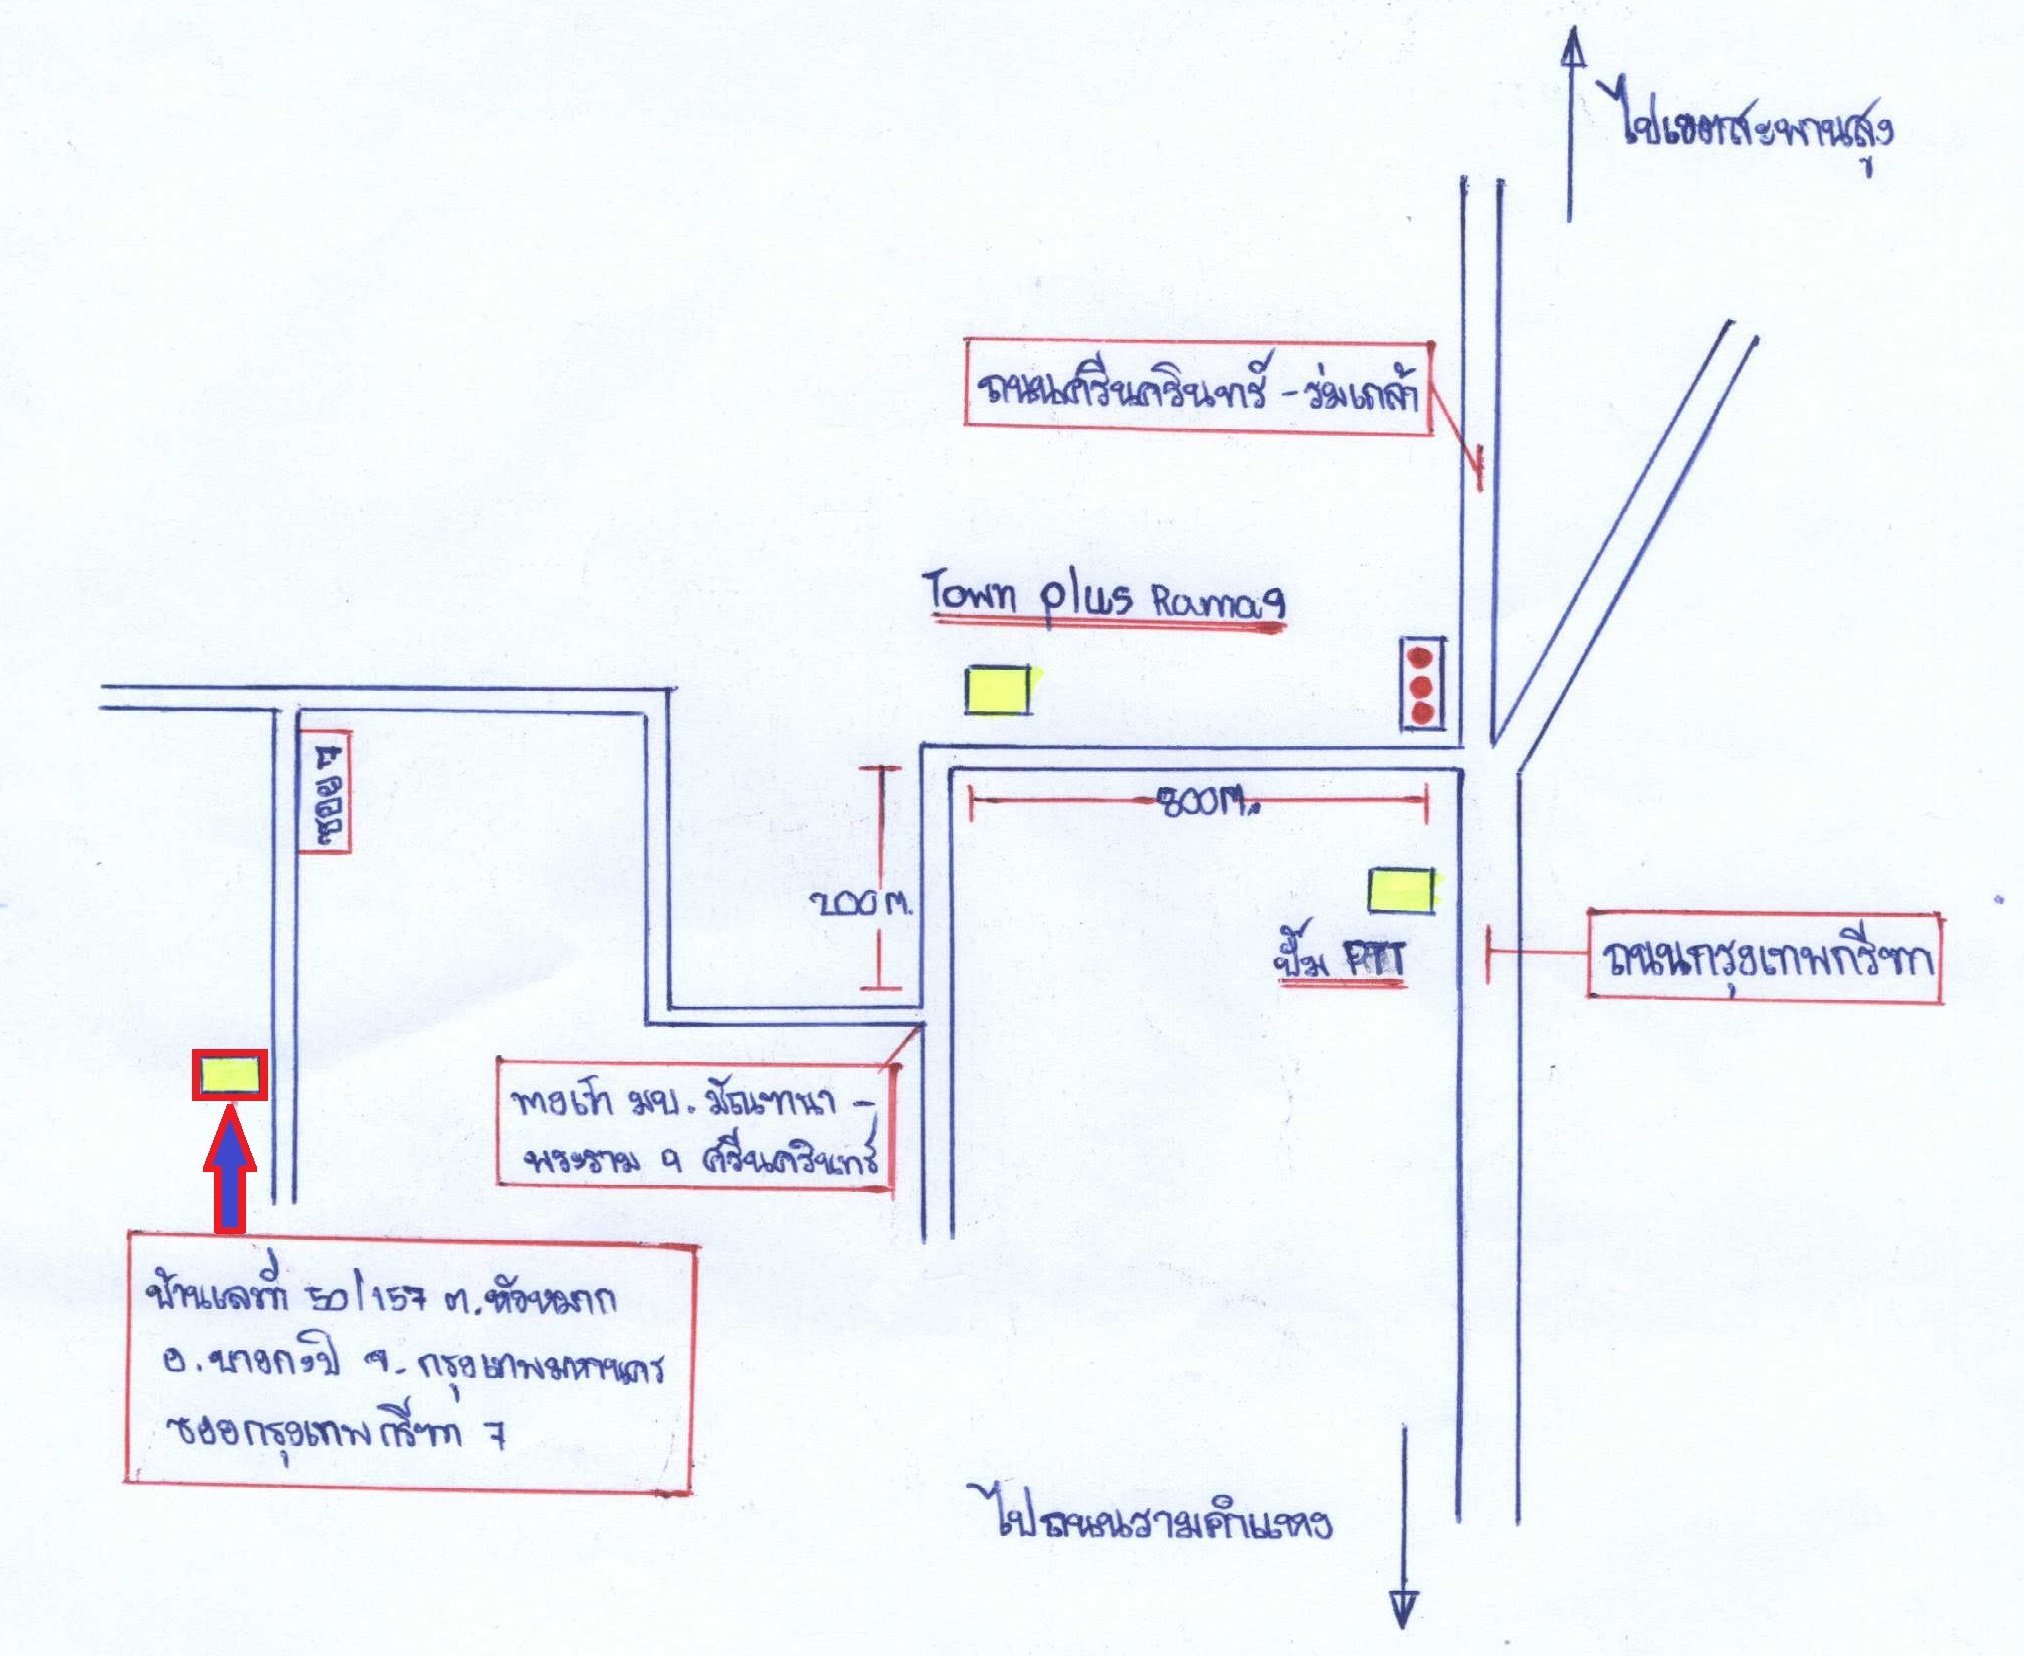 ไปเขตสะพานสูง
ถนนศรีนครินทร์ - ร่มเกล้า
Town plus Rama9
ซอย 7
800 M.
200 M.
ปั๊ม PTT
ถนนกรุงเทพกรีฑา
ทางเข้า มบ. มัณฑนา -
พระราม 9 ศรีนครินทร์
บ้านเลขที่ 50/157 ต. หัวหมาก
อ. บางกะปิ จ. กรุงเทพมหานคร
ซอยกรุงเทพกรีฑา 7
ไปถนนรามคำแหง